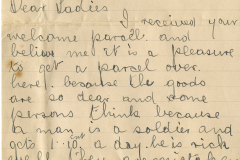 Dear Ladies
I received your
welcome parcell and
believe me it is a pleasure
to get a parcel over
here, because the goods
are so dear and some
persons think because
a man is a soldier and
gets a day he is rich